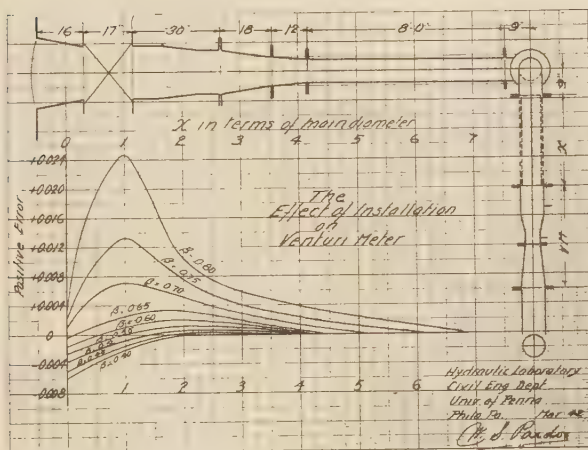 16" 17" 30" 18" 12" 8'-0" 9"
9"
X
VM
X in terms of main diameter
0 1 2 3 4 5 6 7
+0.024
+0.020
+0.016
+0.012
+0.008
+0.004
0
-0.004
-0.008
Positive Error
The
Effect of Installation
on
Venturi Meter
β=0.80
β=0.75
β=0.70
β=0.65
β=0.60
β=0.40
0 1 2 3 4 5 6
Hydraulic Laboratory
Civil Eng Dept
Univ. of Penna
Phila Pa. Mar 42
W. S. Pardoe